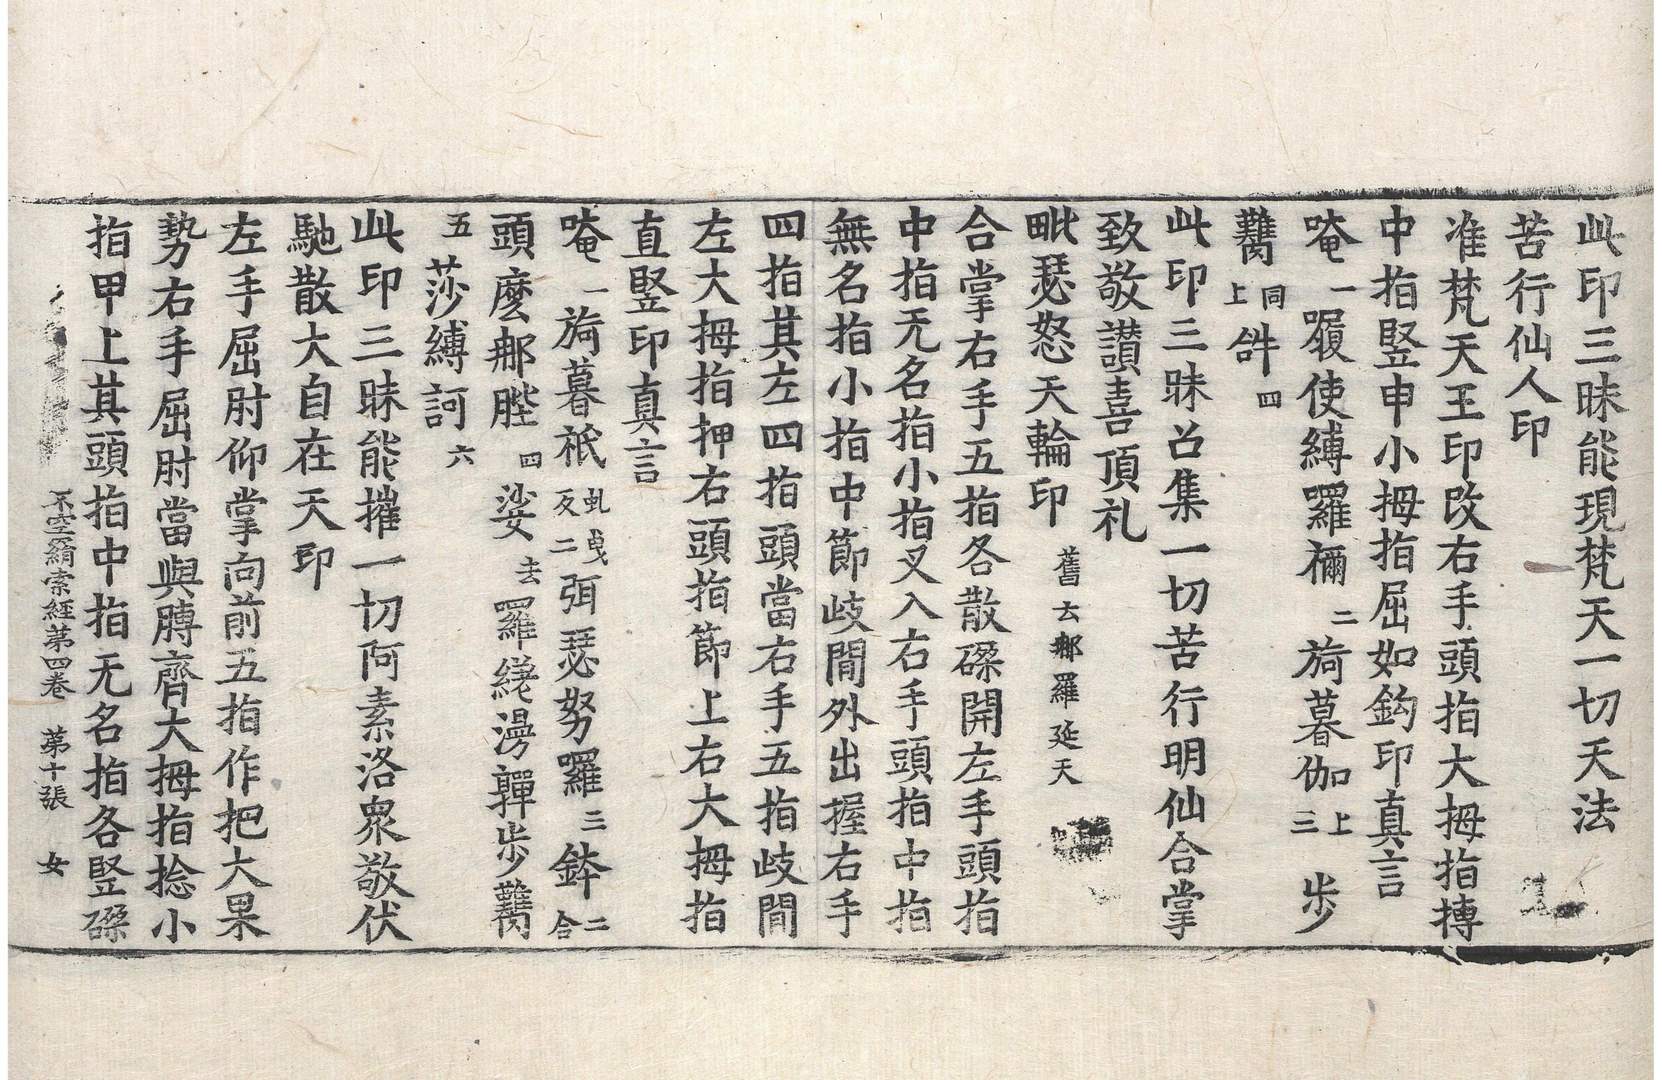 此印三昧能現梵天一切天法
苦行仙人印
准梵天王印改右手頭指大拇指搏
中指竪申小拇指屈如鈎印真言
唵一囇使縛囉禰二旖暮伽上三步
虌同上𤙖四
此印三昧召集一切苦行明仙合掌
致敬讃喜頂礼
毗瑟怒天輪印舊云那羅延天
合掌右手五指各散磔開左手頭指
中指无名指小指叉入右手頭指中指
無名指小指中節歧間外出握右手
四指其左四指頭當右手五指歧間
左大拇指押右頭指節上右大拇指
直竪印真言
唵一旖暮祇虬曳反二弭瑟努囉三鉢二合
頭麼那陛四娑去囉繞漫彈步虌
五莎縛訶六
此印三昧能摧一切阿素洛衆敬伏
馳散大自在天印
左手屈肘仰掌向前五指作把大果
勢右手屈肘當與膊齊大拇指捻小
指甲上其頭指中指无名指各竪磔
不空羂索經第四卷 第十張 女